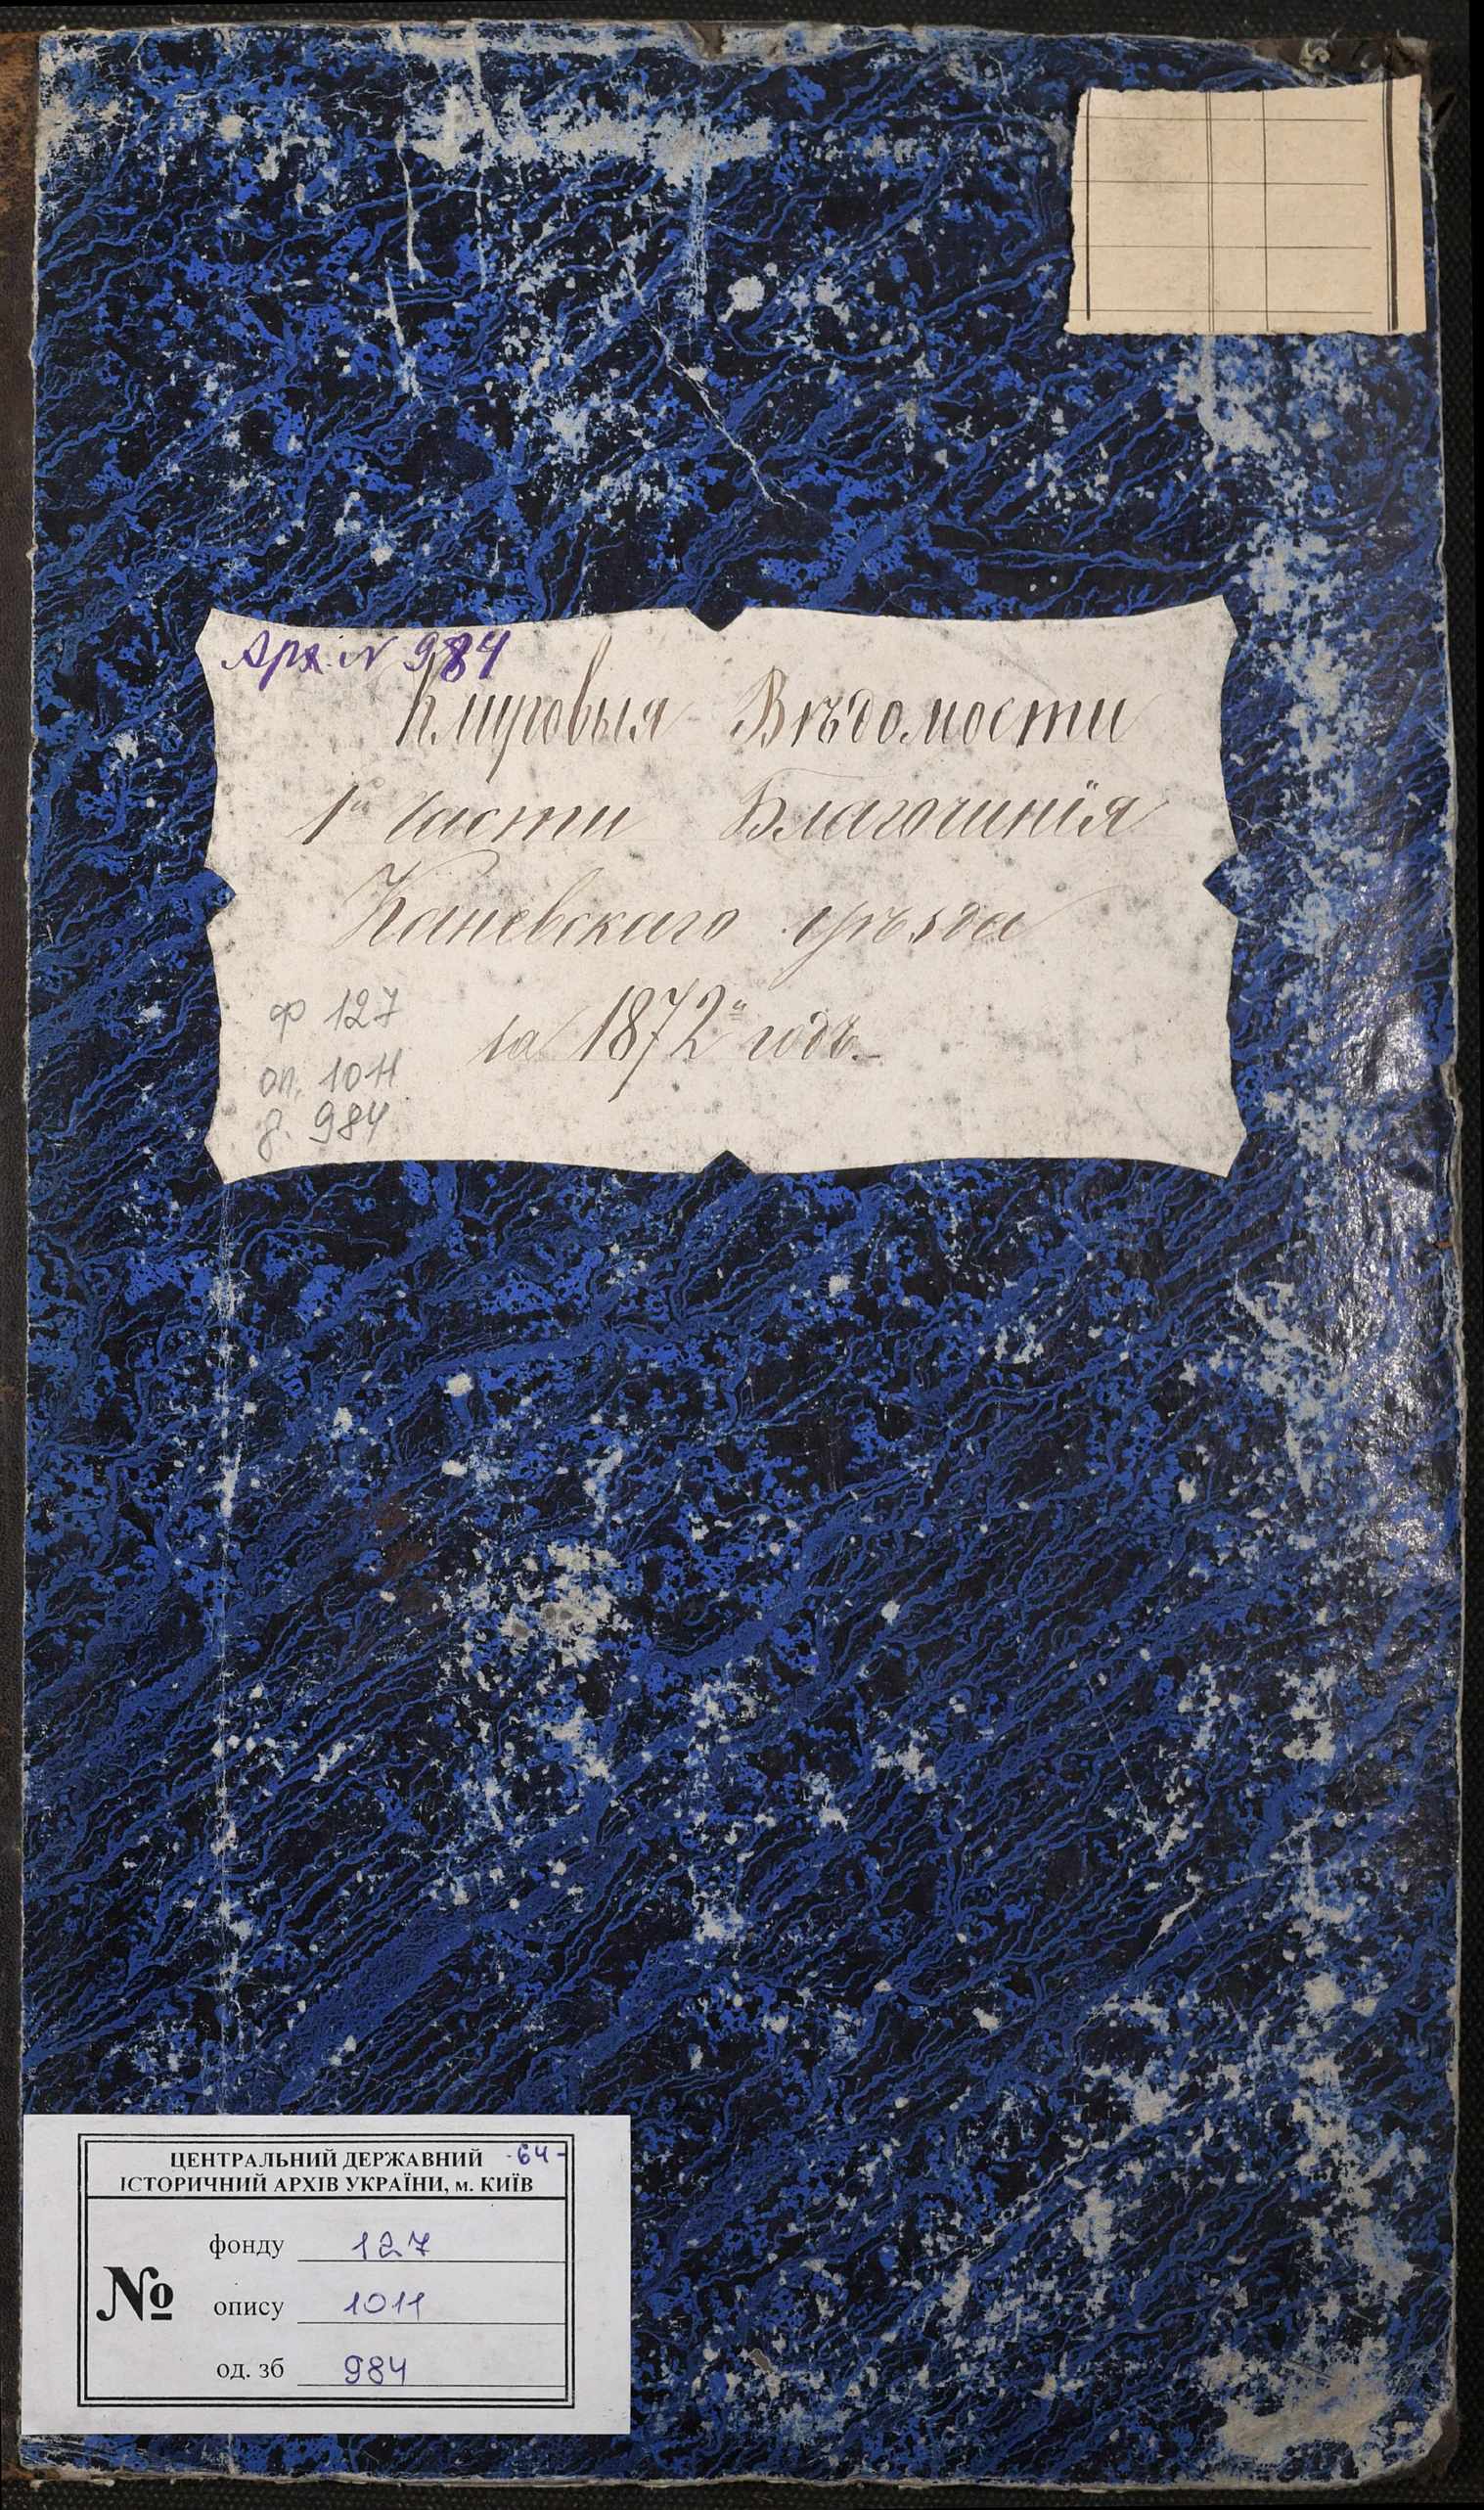 Арх. № 984
Клировыя Вѣдомости
1й Части Благочинія
Каневскаго уѣзда
за 1872й годъ.
ф 127
оп. 1011
д. 984
ЦЕНТРАЛЬНИЙ ДЕРЖАВНИЙ -64-
ІСТОРИЧНИЙ АРХІВ УКРАЇНИ, м. КИЇВ
№
фонду 127
опису 1011
од. зб 984